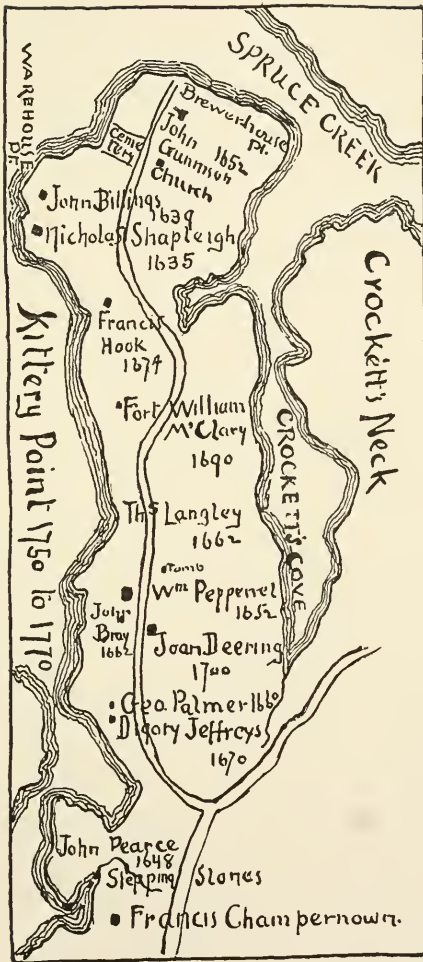 SPRUCE CREEK
WAREHOUSE
Pt.
Brewerhouse
pt.
Ceme
tery
John 1652
Gunnison
Church
John Billings
1639
Nicholas Shapleigh
1635
Crockett's Neck
Kittery Point 1750 to 1770
Francis
Hook
1674
Fort William
M'Clary
1690
CROCKETT'S COVE
Ths Langley
1662
Tomb
Wm Pepperrel
1652
John
Bray
1662
Joan Deering
1700
Geo. Palmer 1660
Digory Jeffreys
1670
John Pearce
1648
Stepping Stones
Francis Champernown.